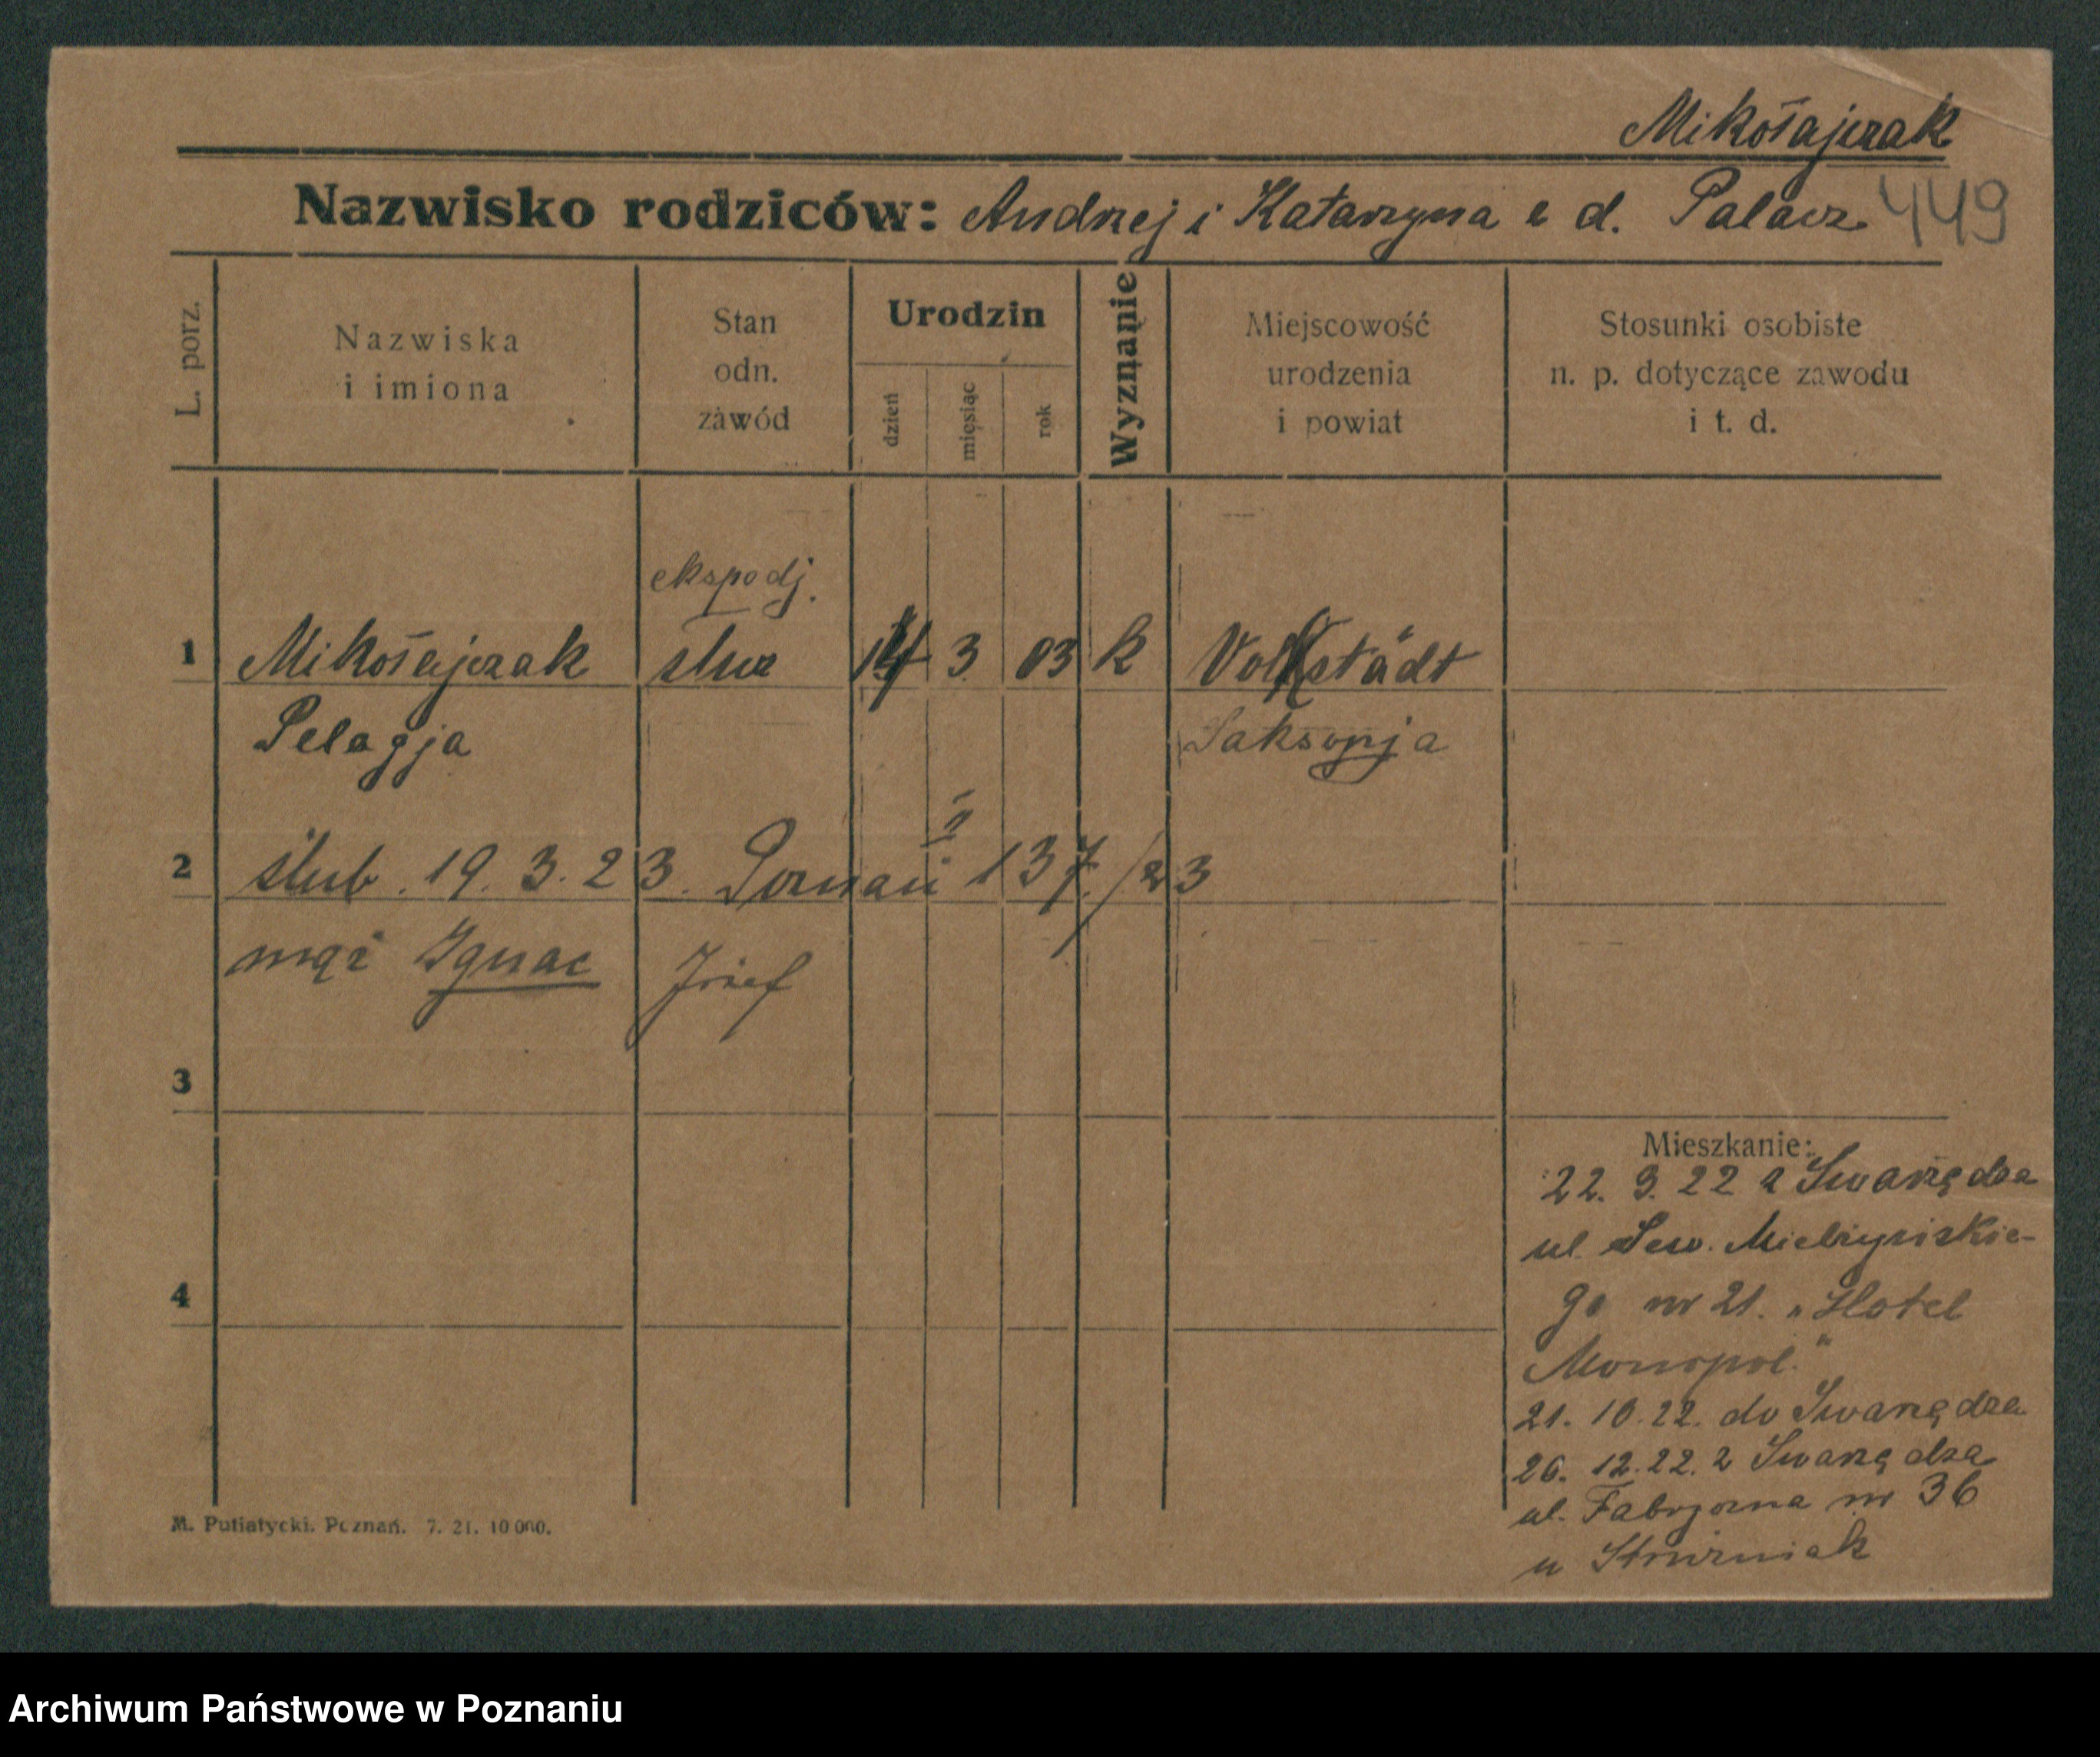 Mikołajczak
Nazwisko rodziców: Andrzej i Katarzyna z d. Palacz
449
L. porz.
Nazwiska
i imiona
Stan
odn.
zawód
Urodzin
dzień
miesiąc
rok
Wyznanie
Miejscowość
urodzenia
i powiat
Stosunki osobiste
n. p. dotyczące zawodu
i t. d.
ekspedj.
1 Mikołajczak służ 14 3 03 k Volkstädt
Pelagja Saksonja
II
2 ślub. 19. 3. 23. Poznań 137/23
mąż Ignac Józef
3
4
Mieszkanie:
22. 9. 22 z Swarzędza
ul. Sew. Mielżyńskie-
go nr 21. "Hotel
Monopol."
21. 10. 22. do Swarzędza
26. 12. 22. z Swarzędza
ul. Fabryczna nr 36
u
M. Putiatycki. Poznań. 7. 21. 10000.
Archiwum Państwowe w Poznaniu